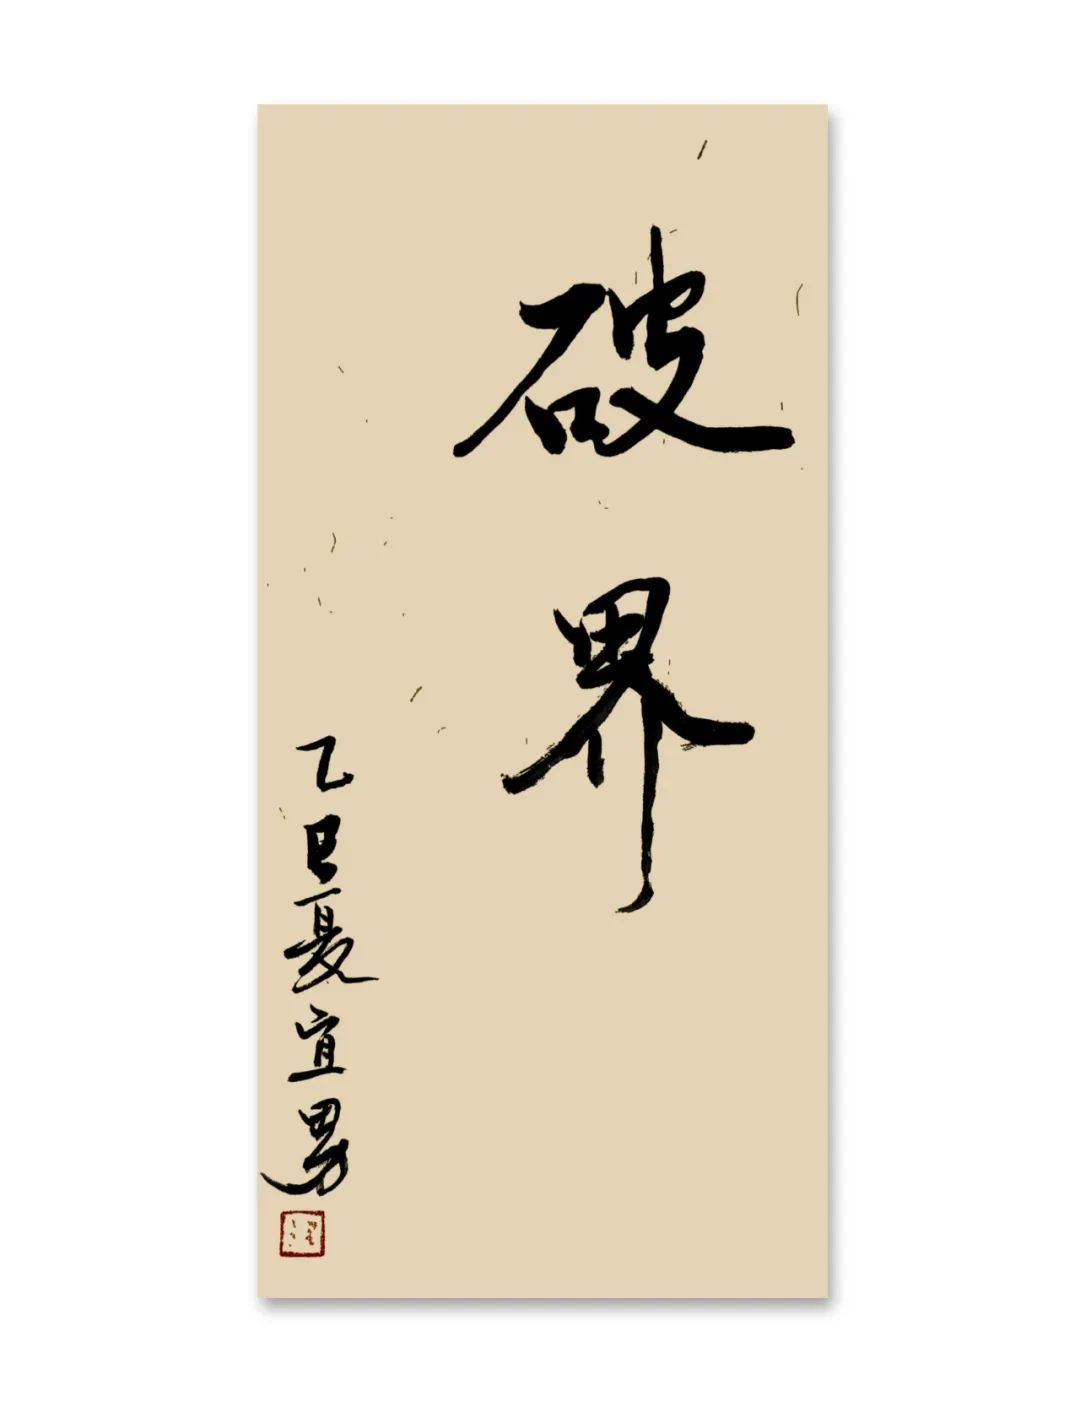 破界
乙巳夏宜男